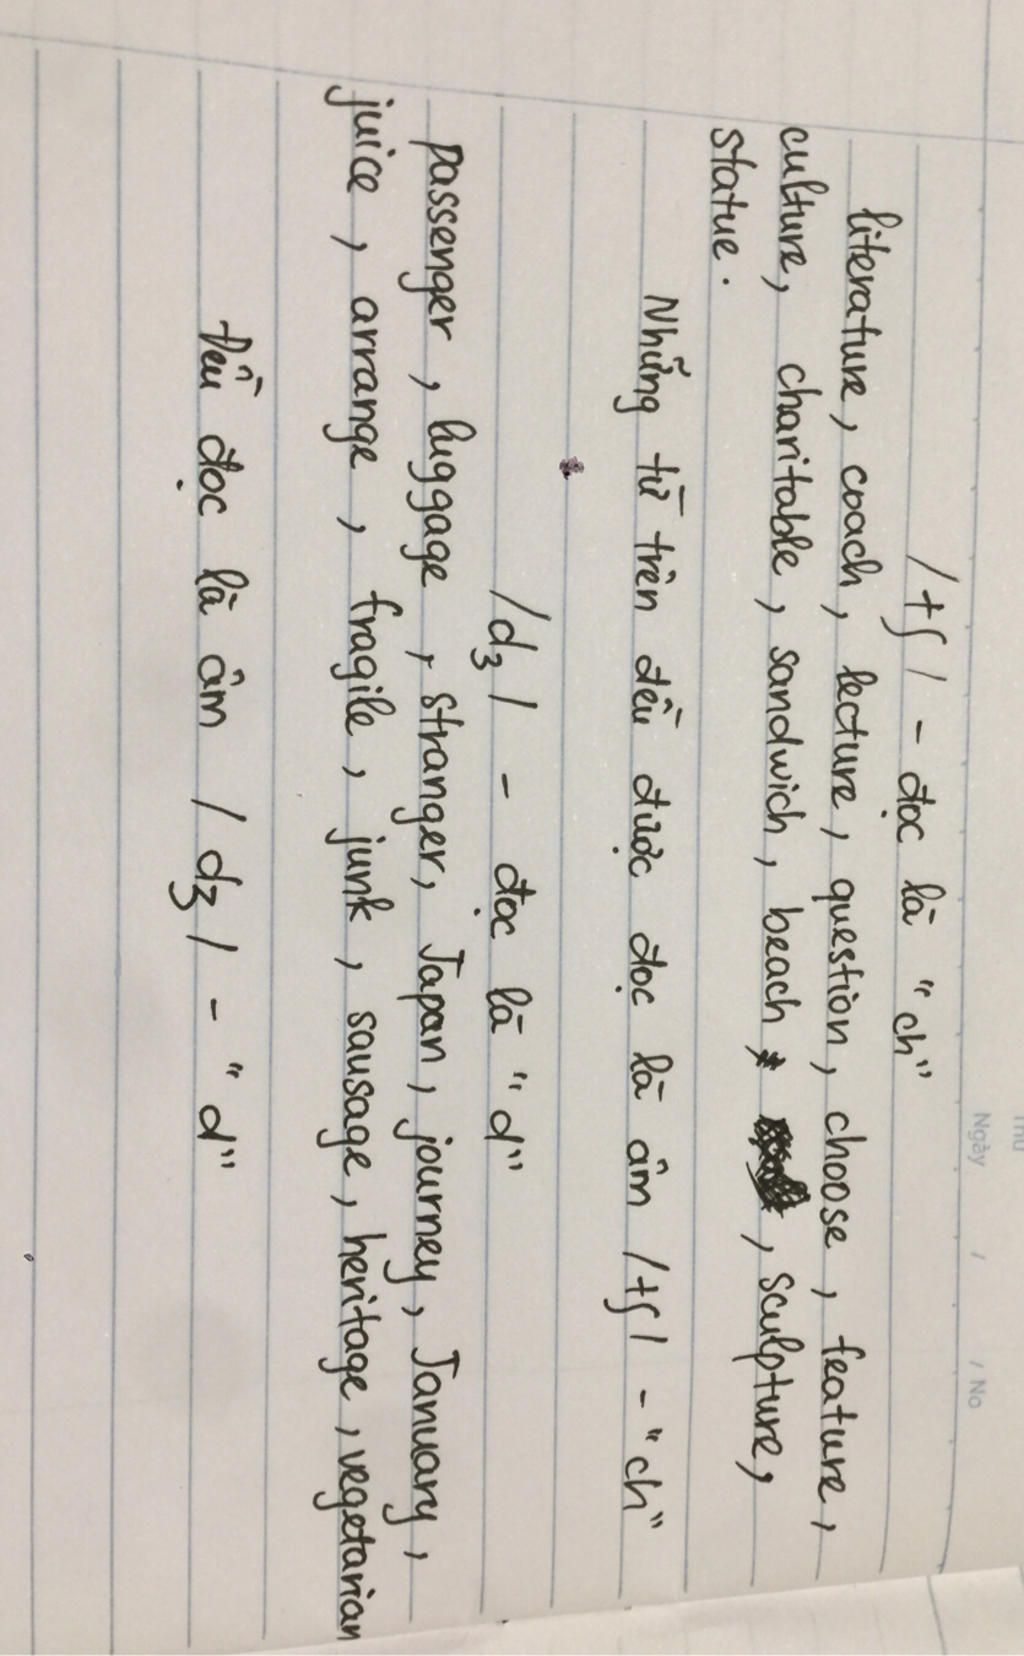 Ngày / / No
/tʃ/ - đọc là "ch"
literature, coach, lecture, question, choose, feature,
culture, charitable, sandwich, beach, , sculpture,
statue.
Những từ trên đều được đọc là âm /tʃ/ - "ch"
/dʒ/ - đọc là "d"
passenger, luggage, stranger, Japan, journey, January,
juice, arrange, fragile, junk, sausage, heritage, vegetarian
Đều đọc là âm /dʒ/ - "d"